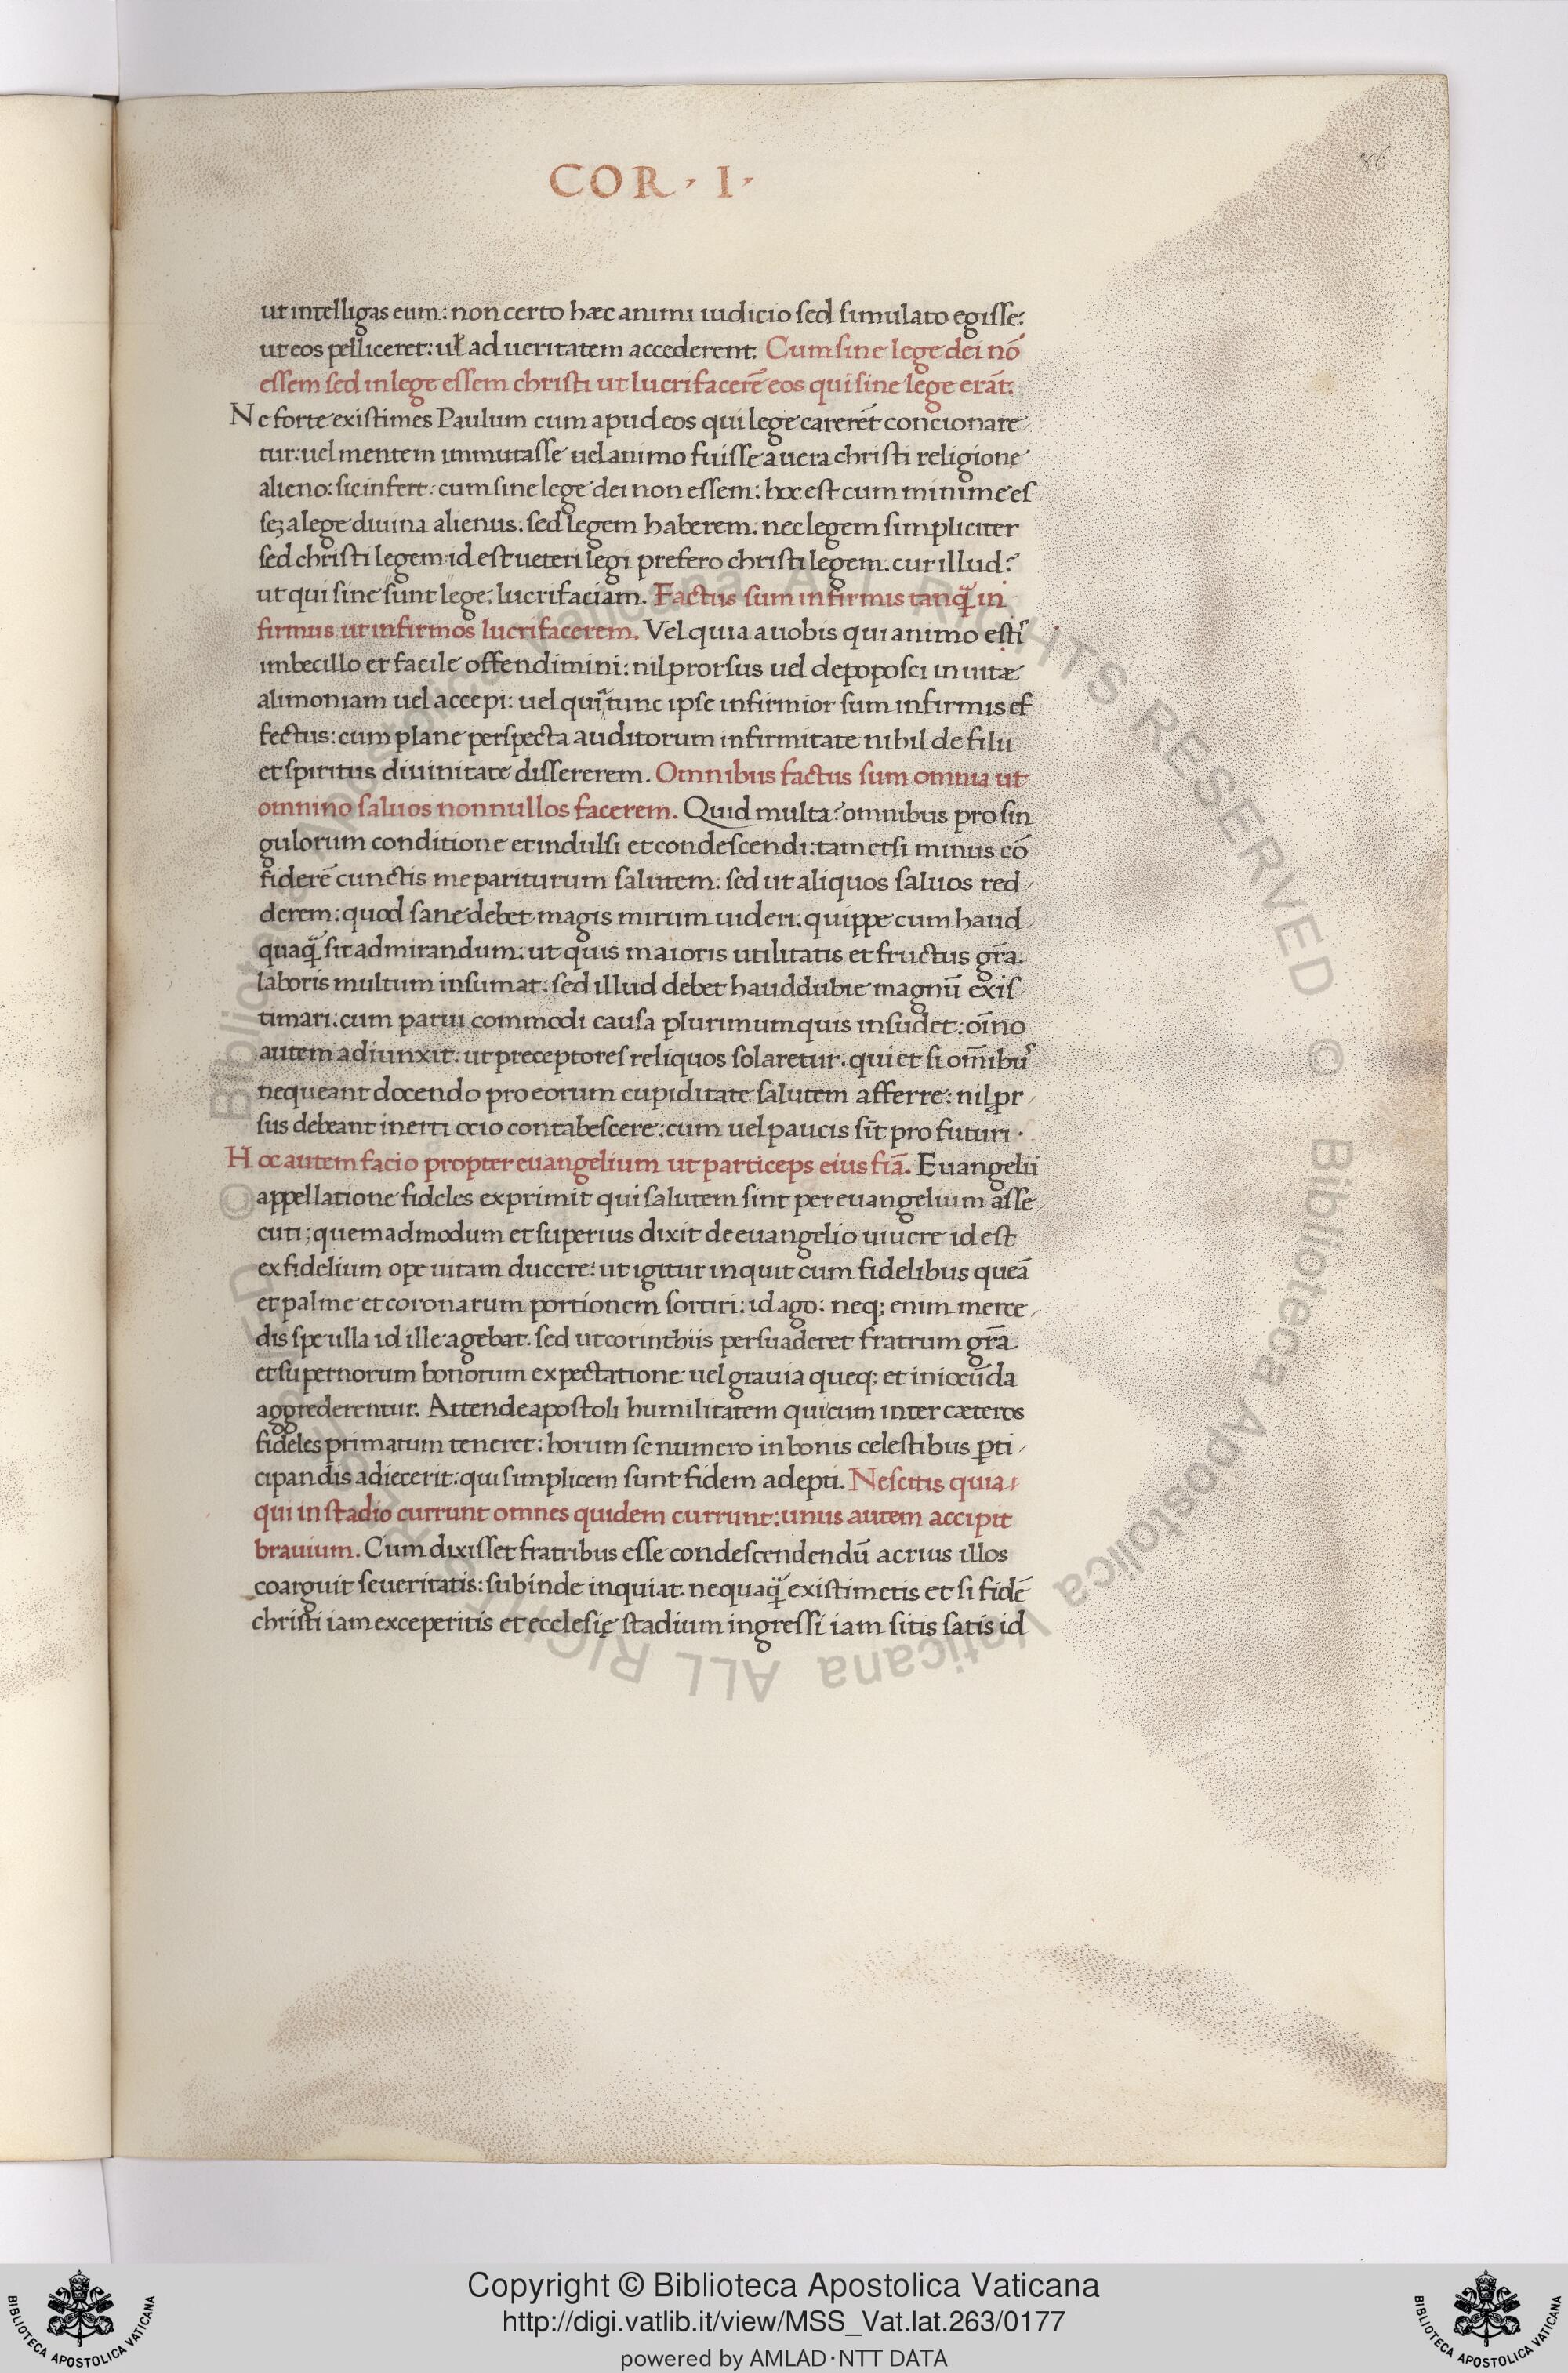 COR · I ·
86
ut intelligas eum: non certo hæc animi iudicio sed simulato egisse:
ut eos pelliceret: ul̃ ad ueritatem accederent. Cum sine lege dei nō
essem sed in lege essem christi ut lucrifacerē eos qui sine lege erāt.
Ne forte existimes Paulum cum apud eos qui lege carerēt concionare
tur: uel mentem immutasse uel animo fuisse a uera christi religione
alieno: sic infert: cum sine lege dei non essem: hoc est cum minime es
seꝫ a lege diuina alienus. sed legem haberem. nec legem simpliciter
sed christi legem id est ueteri legi prefero christi legem. cur illud?
ut qui sine sunt lege, lucrifaciam. Factus sum infirmis tanq̃ in
firmus ut infirmos lucrifacerem. Vel quia a uobis qui animo estis
imbecillo et facile offendimini: nil prorsus uel depoposci in uitæ
alimoniam uel accepi: uel quia tunc ipse infirmior sum infirmis ef
fectus: cum plane perspecta auditorum infirmitate nihil de filii
et spiritus diuinitate dissererem. Omnibus factus sum omnia ut
omnino saluos nonnullos facerem. Quid multa? omnibus pro sin
gulorum conditione et indulsi et condescendi: tametsi minus cō
fiderē cunctis me pariturum salutem: sed ut aliquos saluos red
derem: quod sane debet magis mirum uideri. quippe cum haud
quaq̃ sit admirandum: ut quis maioris utilitatis et fructus gr̃a.
laboris multum insumat: sed illud debet haud dubie magnū exis
timari: cum parui commodi causa plurimum quis insudet: oīno
autem adiunxit. ut preceptores reliquos solaretur. qui et si om̄ibus
nequeant docendo pro eorum cupiditate salutem afferre: nil ꝓr
sus debeant inerti ocio contabescere: cum uel paucis sīt profuturi ·
Hoc autem facio propter euangelium ut particeps eius fiā. Euangelii
appellatione fideles exprimit qui salutem sint per euangelium asse
cuti; quemadmodum et superius dixit de euangelio uiuere id est
ex fidelium ope uitam ducere: ut igitur inquit cum fidelibus queā
et palme et coronarum portionem sortiri: id ago: neq; enim merce
dis spe ulla id ille agebat. sed ut corinthiis persuaderet fratrum gr̃a
et supernorum bonorum expectatione uel grauia queq; et iniocūda
aggrederentur. Attende apostoli humilitatem qui cum inter cæteros
fideles primatum teneret: horum se numero in bonis celestibus ꝑti
cipandis adiecerit: qui simplicem sunt fidem adepti. Nescitis quia
qui in stadio currunt omnes quidem currunt: unus autem accipit
brauium. Cum dixisset fratribus esse condescendendū acrius illos
coarguit seueritatis: subinde inquiat. nequaq̃ existimetis et si fidē
christi iam exceperitis et ecclesię stadium ingressi iam sitis satis id
© Biblioteca Apostolica Vaticana ALL RIGHTS RESERVED © Biblioteca Apostolica Vaticana ALL RIGHTS RESERVED
Copyright © Biblioteca Apostolica Vaticana
http://digi.vatlib.it/view/MSS_Vat.lat.263/0177
powered by AMLAD·NTT DATA
BIBLIOTECA APOSTOLICA VATICANA
BIBLIOTECA APOSTOLICA VATICANA